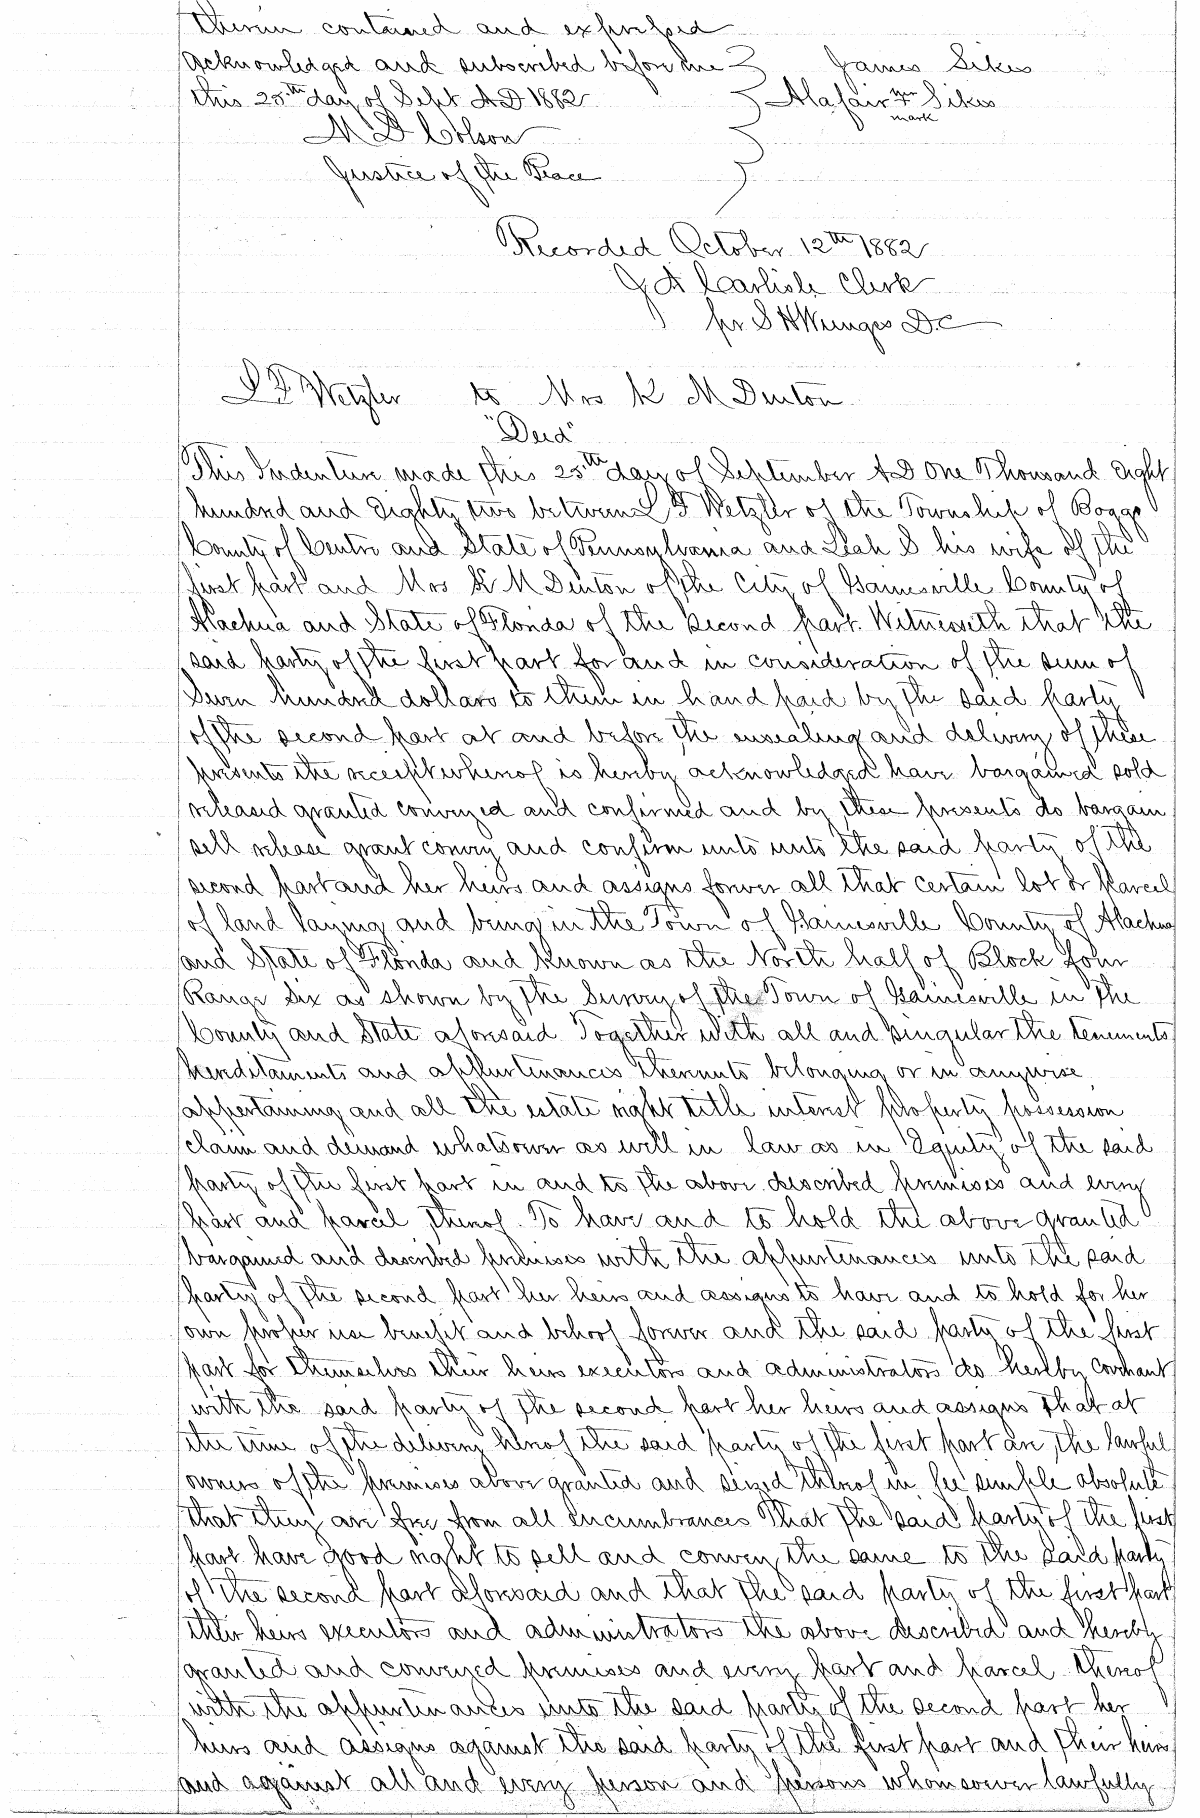 therein contained and expressed
Acknowledged and subscribed before me James Sikes
this 25th day of Sept A D 1882 Alafair her x Sikes
mark
M D Colson
Justice of the Peace
Recorded October 12th 1882
J A Carlisle Clerk
pr S H Wienges D.C
L F Wetzler to Mrs K M Denton
"Deed"
This Indenture made this 25th day of September A D One Thousand Eight
hundred and Eighty two between L F Wetzler of the Township of Boggs
County of Centre and State of Pennsylvania and Leah S his wife of the
first part and Mrs K M Denton of the City of Gainesville County of
Alachua and State of Florida of the second part. Witnesseth that the
said party of the first part for and in consideration of the sum of
Seven hundred dollars to them in hand paid by the said party
of the second part at and before the ensealing and delivery of these
presents the receipt whereof is hereby acknowledged have bargained sold
released granted conveyed and confirmed and by these presents do bargain
sell release grant convey and confirm unto unto the said party of the
second part and her heirs and assigns forever all that certain lot or Parcel
of land laying and being in the Town of Gainesville County of Alachua
and State of Florida and known as the North half of Block four
Range Six as shown by the Survey of the Town of Gainesville in the
County and State aforesaid Together with all and singular the tenements
hereditaments and appurtenances thereunto belonging or in anywise
appertaining and all the estate right title interest property possession
claim and demand whatsoever as well in law as in Equity of the said
party of the first part in and to the above described premises and every
part and parcel thereof. To have and to hold the above granted
bargained and described premises with the appurtenances unto the said
party of the second part her heirs and assigns to have and to hold for her
own proper use benefit and behoof forever and the said party of the first
part for themselves their heirs executors and administrators do hereby covenant
with the said party of the second part her heirs and assigns that at
the time of the delivery hereof the said party of the first part are the lawful
owners of the premises above granted and seized thereof in fee simple absolute
that they are free from all encumbrances That the said party of the first
part have good right to sell and convey the same to the said party
of the second part aforesaid and that the said party of the first part
their heirs executors and administrators the above described and hereby
granted and conveyed premises and every part and parcel thereof
with the appurtenances unto the said party of the second part her
heirs and assigns against the said party of the first part and their heirs
and against all and every person and persons whomsoever lawfully